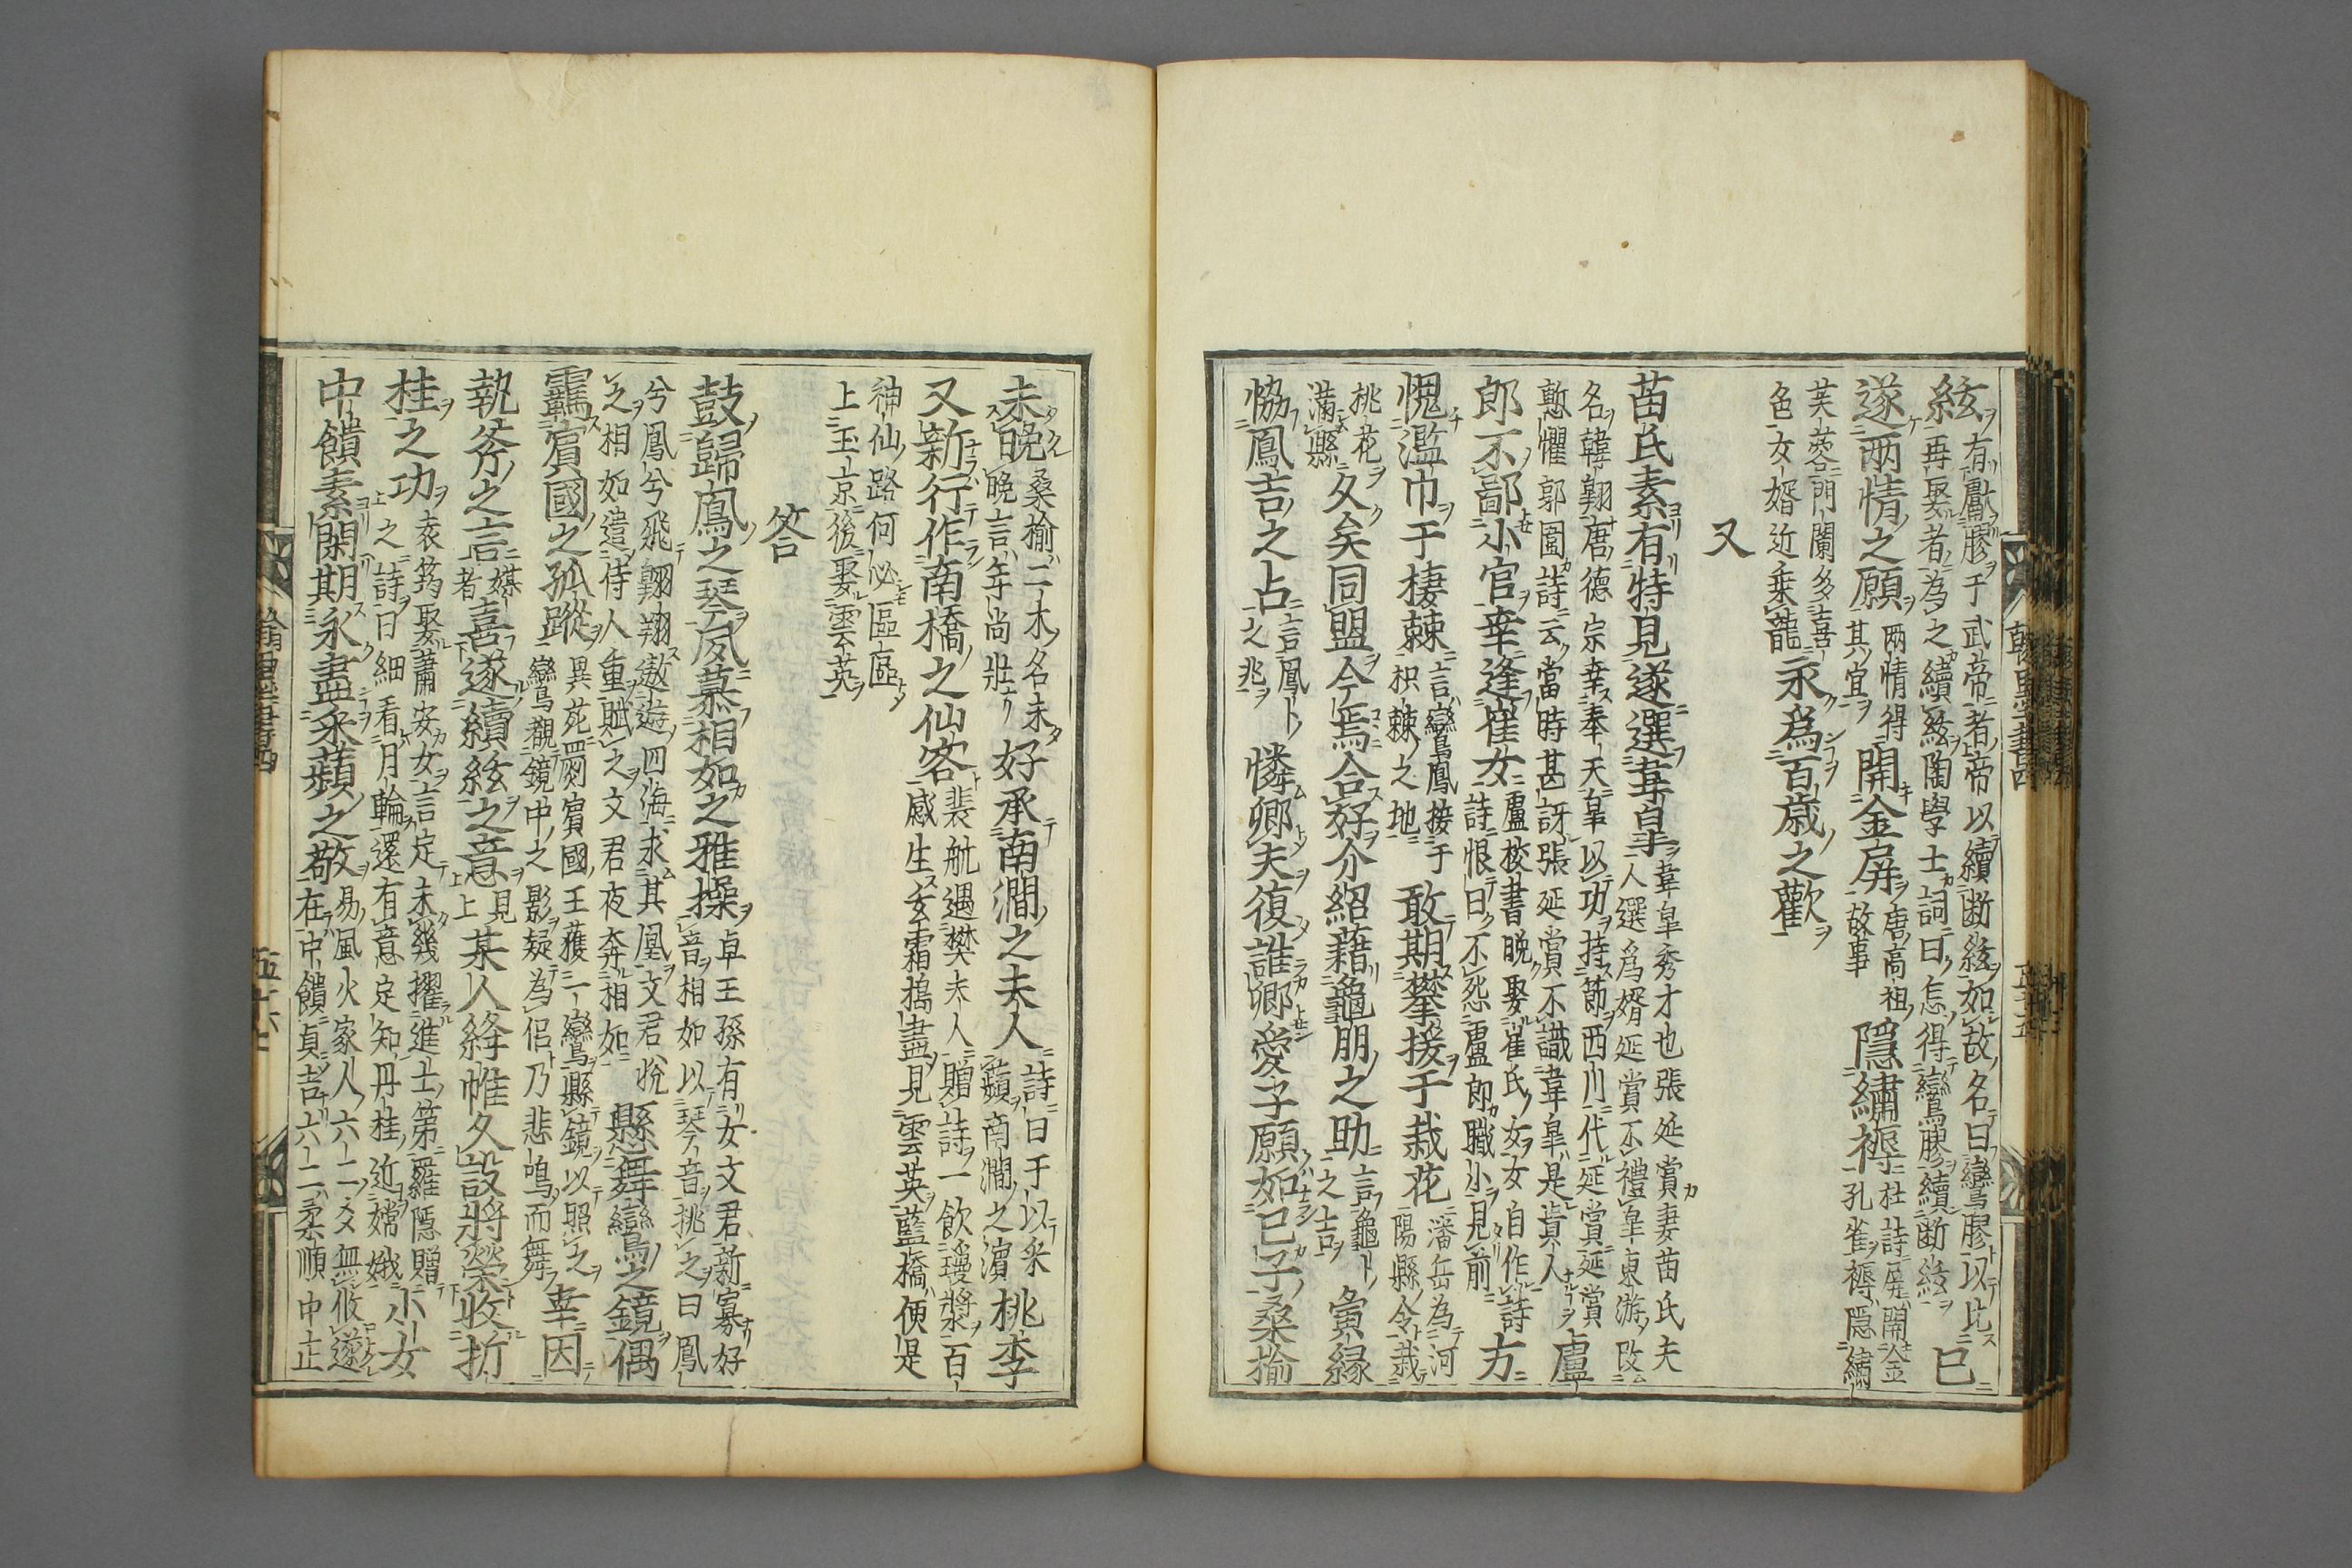 絃有獻膠于武帝者帝以續断絃如故名曰鸞膠以比再娶者為之續絃陶學士詞曰怎得鸞膠續断絃已
遂兩情之願兩情得其宜開金屏唐高祖故事隱繡褥杜詩屏開金孔雀褥隱繡
芙蓉門闌多喜色女婿近乗龍永爲百歲之歡
又
苗氏素有特見遂選韋皋韋皋秀才也張延賞妻苗氏夫人選爲婿延賞不禮皋東游改
名韓翺唐德宗幸奉天皋以功持節西川代延賞延賞慙懼郭圉詩云當時甚訝張延賞不識韋皋是貴人盧
郎不鄙小官幸逢崔女盧校書晚娶崔氏女女自作詩詩恨曰不怨盧郎職小見前方
愧濫巾于棲棘言鸞鳳接于枳棘之地敢期攀援于栽花潘岳為河陽縣令栽
桃花滿縣久矣同盟今焉合好介紹藉龜朋之助言龜卜之吉寅縁
恊鳳吉之占言鳳卜之兆憐卿夫復誰卿愛子願如己子桑榆
未晚桑榆二木名未晚言年尚壯好承南澗之夫人詩曰于以采蘋南澗之濵桃李
又新行作南橋之仙客裴航遇樊夫人贈詩一飲瓊漿百感生玄霜搗盡見雲英藍橋便是
神仙路何必區區上玉京後娶雲英
答
鼓歸鳳之琴夙慕相如之雅操卓王孫有女文君新寡好音相如以琴音挑之曰鳳
兮鳳兮飛翺翔遨遊四海求其凰文君悅之相如遣侍人重賦之文君夜奔相如懸舞鸞之鏡偶
覊賓國之孤蹤異苑罽賓國王獲一鸞縣鏡以照之鸞覩鏡中之影疑為侶乃悲鳴而舞幸因
執斧之言媒者喜遂續絃之意見上某人絳帷久設將榮收折
桂之功袁筠娶蕭安女言定未幾擢進士第羅隱贈之詩曰細看月輪還有意定知丹桂近嫦娥小女
中饋素閑期永盡采蘋之敬易風火家人六二爻無攸遂在中饋貞吉六二柔順中正